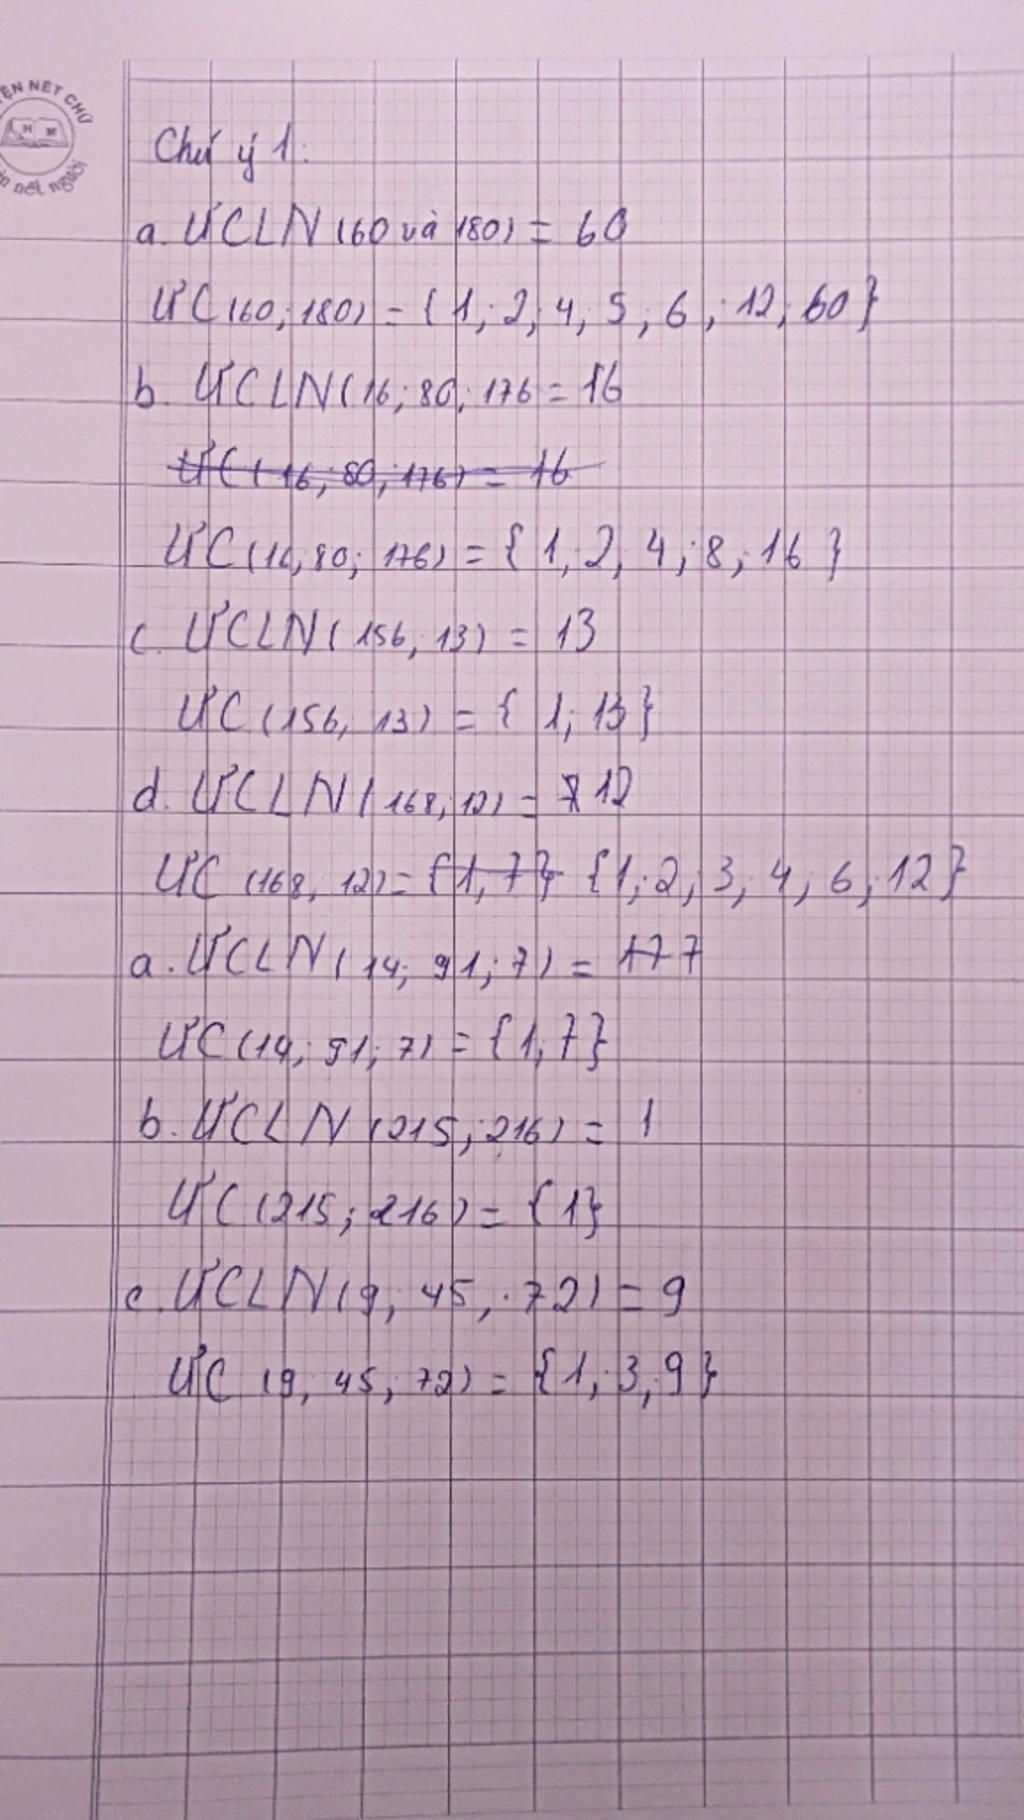 ỆN NÉT CHỮ
H M
n nết người
Chú ý 1:
a. ƯCLN (60 và 180) = 60
ƯC (60; 180) = {1; 2; 4; 5; 6; 12; 60}
b. ƯCLN (16; 80; 176 = 16
ƯC (16; 80; 176) = 16
ƯC (16; 80; 176) = {1, 2, 4; 8; 16}
c. ƯCLN (156, 13) = 13
ƯC (156, 13) = {1; 13}
d. ƯCLN (168, 12) = 12
ƯC (168, 12) = {1, 7} {1; 2; 3, 4, 6; 12}
a. ƯCLN (14; 91; 7) = 177
ƯC (14; 91; 7) = {1, 7}
b. ƯCLN (215; 216) = 1
ƯC (215; 216) = {1}
c. ƯCLN (9; 45, 72) = 9
ƯC (9, 45; 72) = {1; 3, 9}